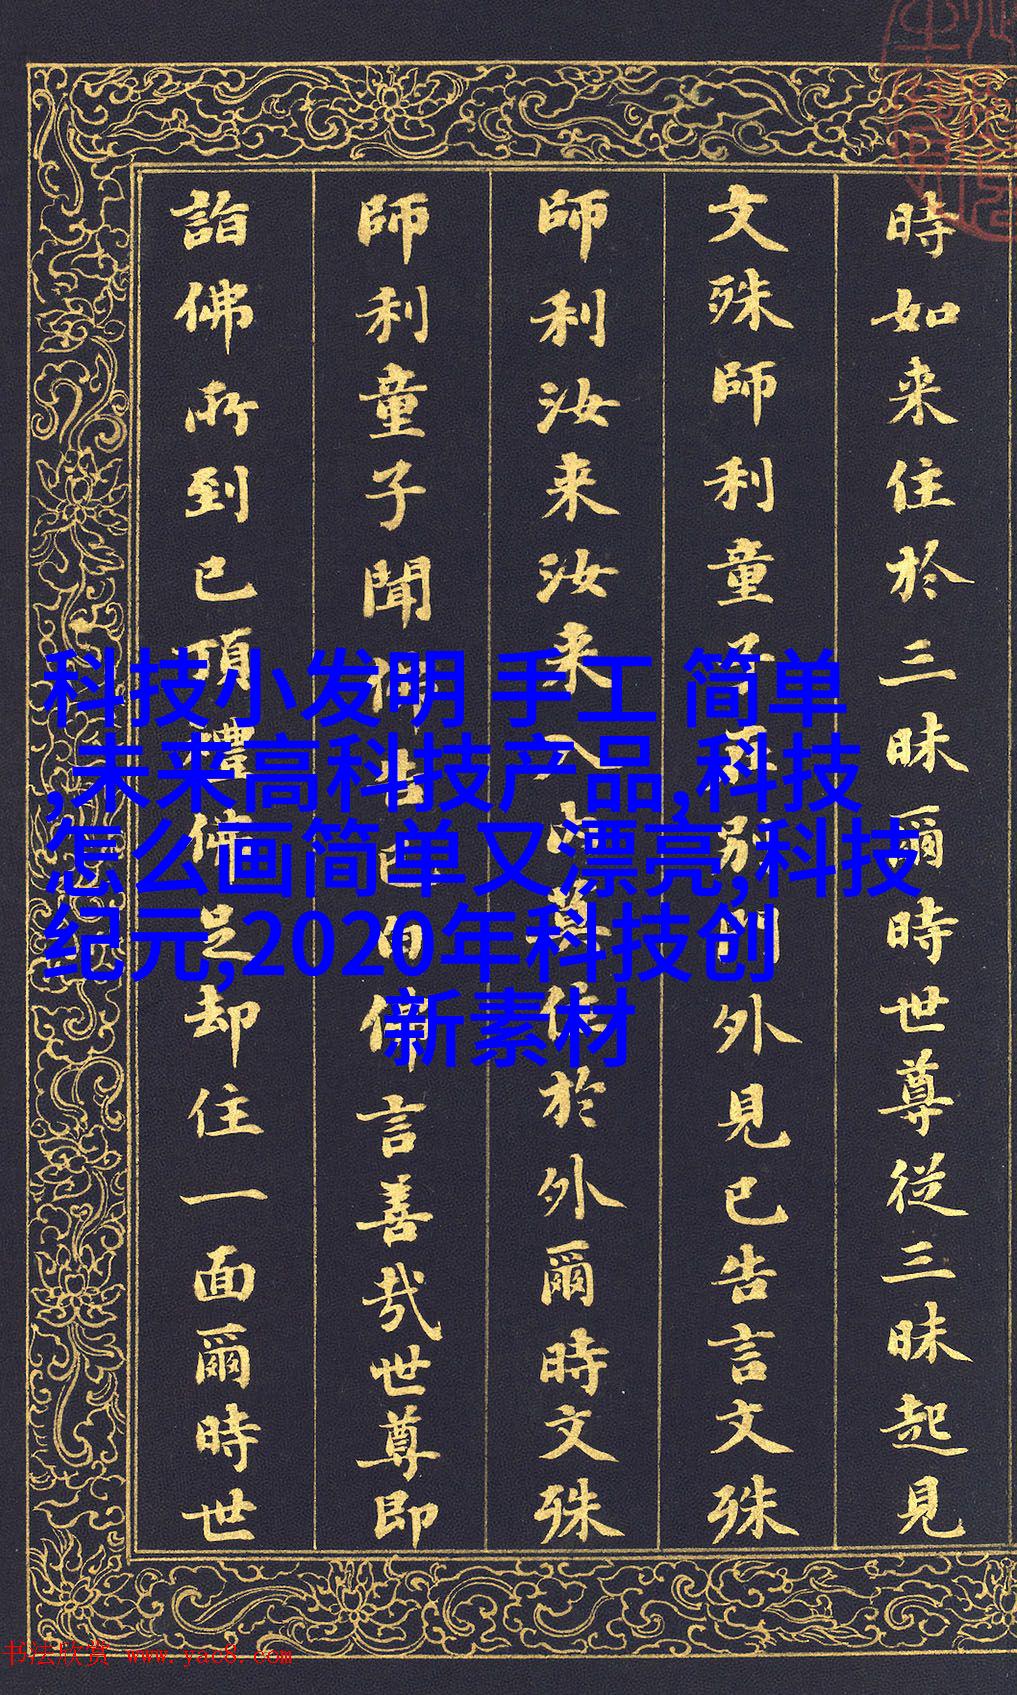 時如来住於三昧爾時世尊従三昧起見
文殊師利童子在别門外見已告言文殊
師利汝来汝来入内莫住於外爾時文殊
師利童子聞佛告已白佛言善哉世尊即
詣佛所到已頂禮佛足却住一面爾時世
科技小发明 手工 简单
,未来高科技产品,科技
怎么画简单又漂亮,科技
纪元,2020年科技创
新素材
书法欣赏 www.yac8.com